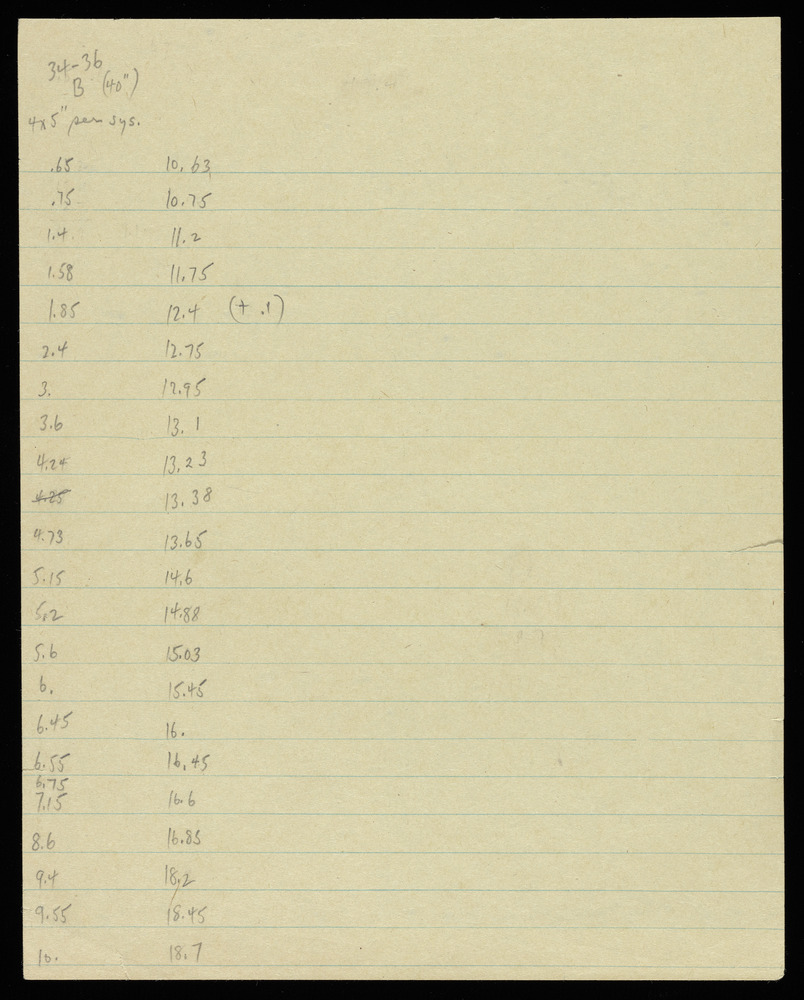 34-36
B (40")
4x5" per sys.
.65 10.63
.75 10.75
1.4 11.2
1.58 11.75
1.85 12.4 (+ .1)
2.4 12.75
3. 12.95
3.6 13.1
4.24 13.23
4.25 13.38
4.73 13.65
5.15 14.6
5.2 14.88
5.6 15.03
6. 15.45
6.45 16.
6.55 16.45
6.75
7.15 16.6
8.6 16.85
9.4 18.2
9.55 18.45
10. 18.7